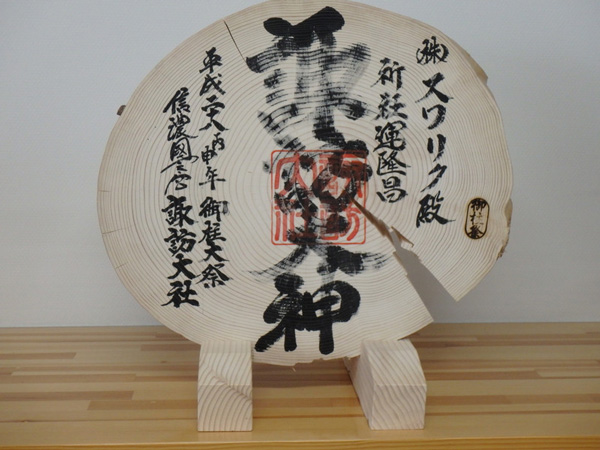 ㈱スワリク殿
祈社運隆昌
諏訪大神
平成二十八丙申年 御柱大祭
信濃國一之宮 諏訪大社